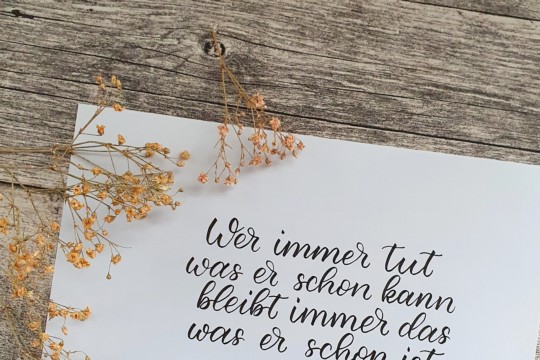 Wer immer tut
was er schon kann
bleibt immer das
was er schon ist